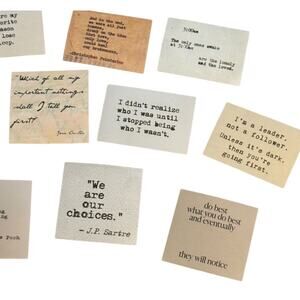 my
favorite
mason
lose
And in the end,
we were all just
humans
drunk on the idea
that love,
only love,
could heal
our brokenness.
-Christopher Poindexter
3:00am
The only ones awake
at 3:00am
are the lonely
and the loved.
Which of all my
important nothings
shall I tell you
first?
Jane Austen
I didn't realize
who I was until
I stopped being
who I wasn't.
I'm a leader,
not a follower.
Unless it's dark,
then you're
going first.
Pooh
"We
are
our
choices."
- J.P. Sartre
do best
what you do best
and eventually
they will notice